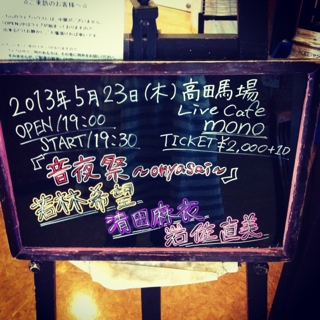 ☆ご来店のお客様へ☆
2013年5月23日(木)高田馬場
Live Cafe
mono
OPEN/19:00
START/19:30
TICKET ¥2,000+1D
『音夜祭～onyasai～』
若林希望
清田麻衣
岩佐直美